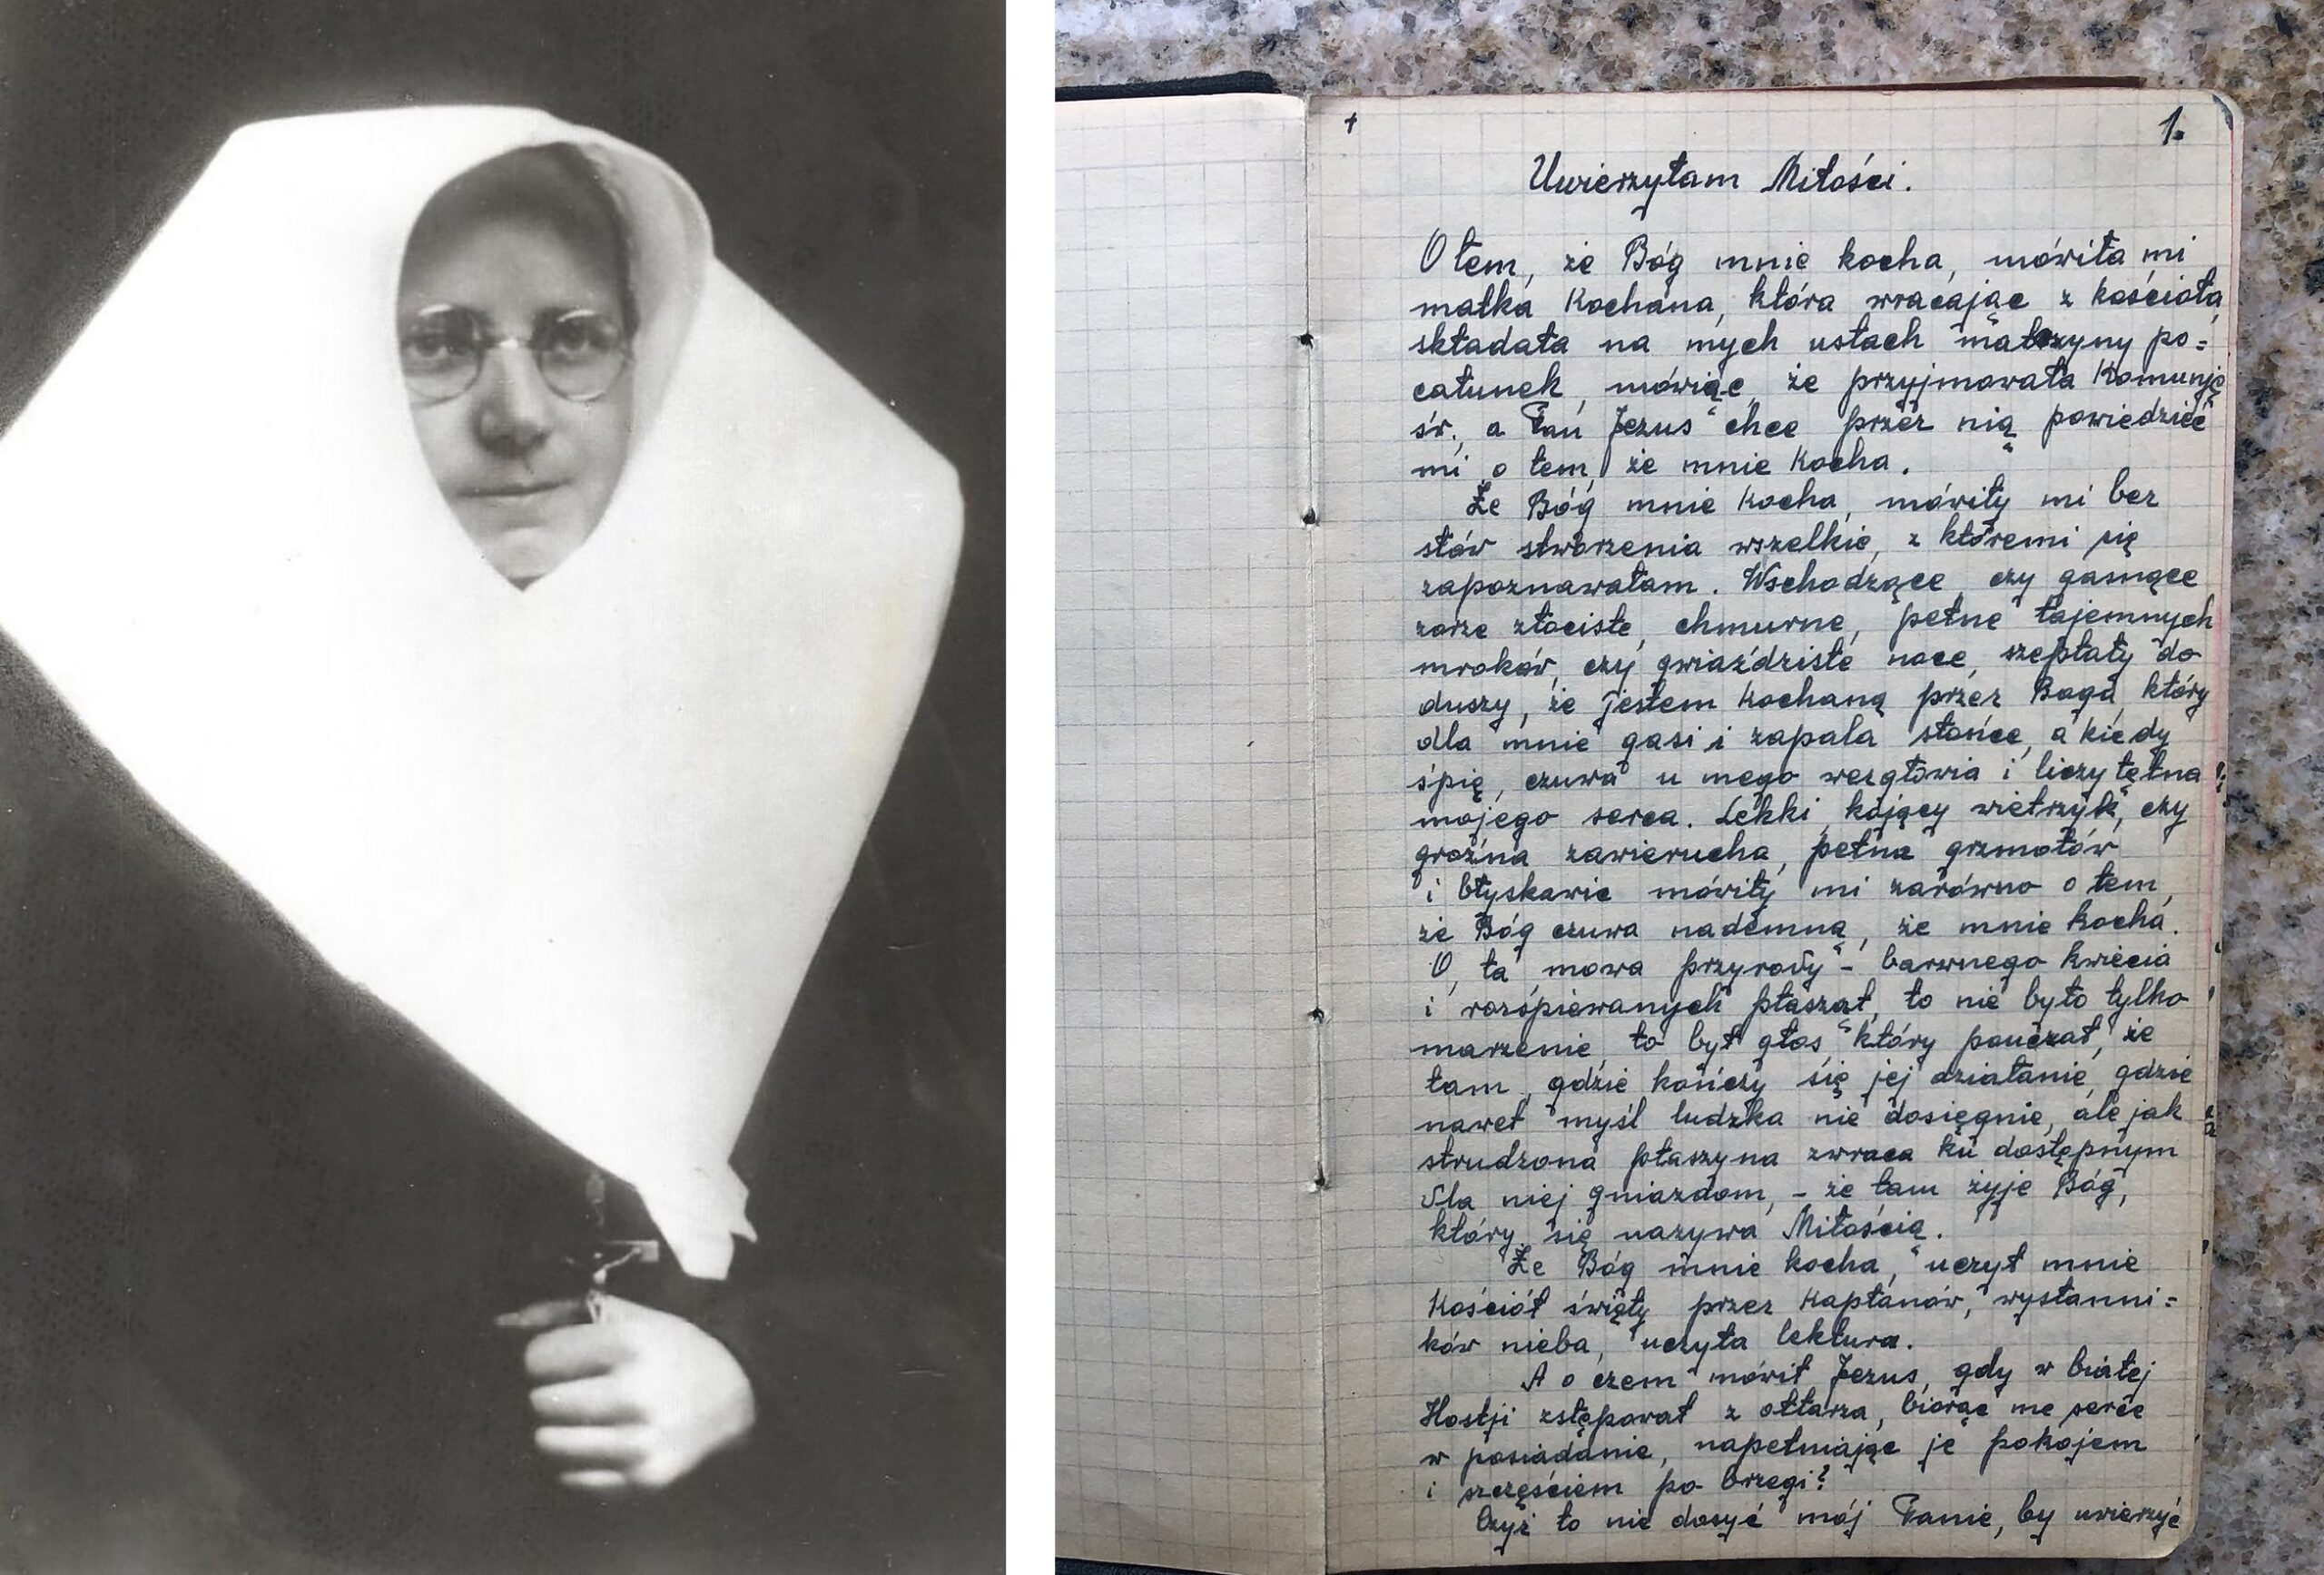 †
1.
Uwierzyłam Miłości.
O tem, że Bóg mnie kocha, mówiła mi
matka kochana, która wracając z kościoła,
składała na mych ustach matczyny po=
całunek, mówiąc, że przyjmowała Komunję
św., a Pan Jezus chce przez nią powiedzieć
mi o tem, że mnie kocha.
Że Bóg mnie kocha, mówiły mi bez
słów stworzenia wszelkie, z któremi się
zapoznawałam. Wschodzące, czy gasnące
zorze złociste, chmurne, pełne tajemnych
mroków, czy gwiaździste noce, szeptały do
duszy, że jestem kochaną przez Boga, który
dla mnie gasi i zapala słońce, a kiedy
śpię, czuwa u mego wezgłowia i liczy tętna
mojego serca. Lekki, kojący wietrzyk, czy
groźna zawierucha, pełna grzmotów
i błyskawic mówiły mi zarówno o tem,
że Bóg czuwa nademną, że mnie kocha.
O, ta mowa przyrody - barwnego kwiecia
i rozśpiewanych ptasząt, to nie było tylko
marzenie, to był głos, który pouczał, że
tam, gdzie kończy się jej działanie, gdzie
nawet myśl ludzka nie dosięgnie, ale jak
strudzona ptaszyna zwraca ku dostępnym
dla niej gniazdom, - że tam żyje Bóg,
który się nazywa Miłością.
Że Bóg mnie kocha, uczył mnie
Kościół święty przez kapłanów, wysłanni=
ków nieba, uczyła lektura.
A o czem mówił Jezus, gdy w białej
Hostji zstępował z ołtarza, biorąc me serce
w posiadanie, napełniając je pokojem
i szczęściem po brzegi?
Czyż to nie dosyć mój Panie, by uwierzyć